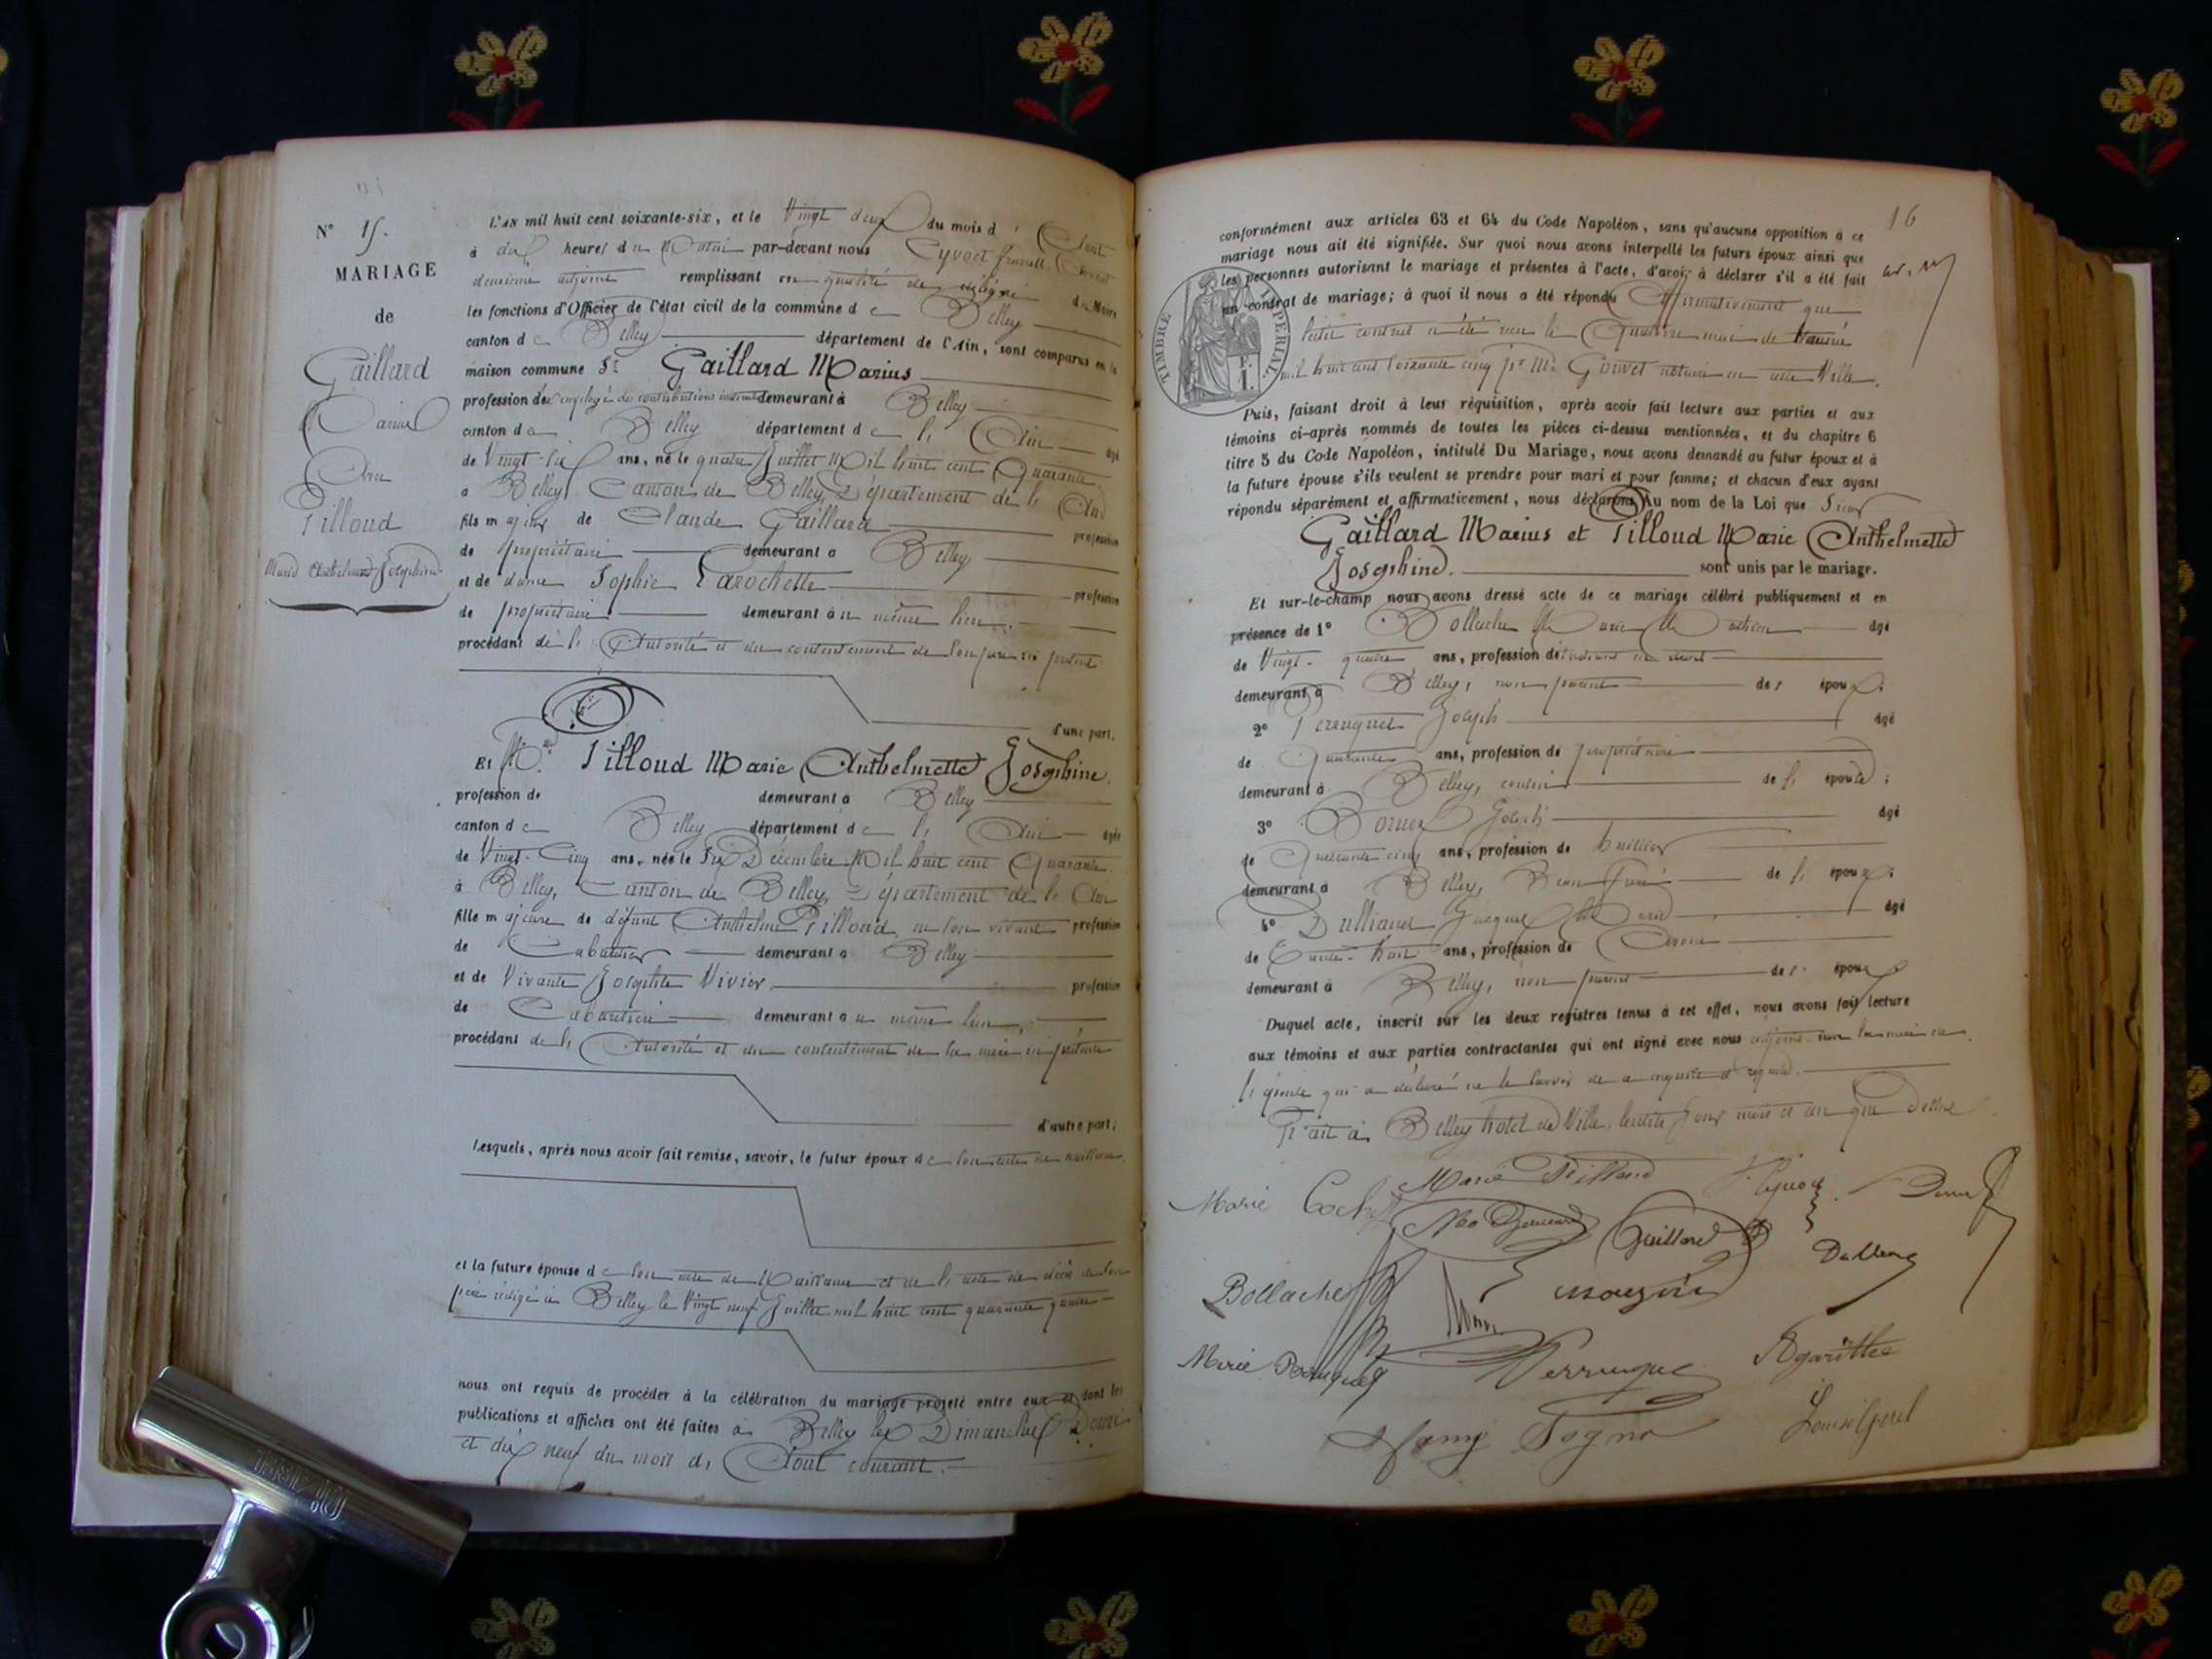 N° 15.
MARIAGE
de
Gaillard
Marius
Avec
Pilloud
Marie Anthelmette Joséphine
L'AN mil huit cent soixante-six, et le Vingt deux du mois d' Août
à dix heures du Matin par-devant nous Cyvoct
deuxième adjoint remplissant en qualité de du Maire
les fonctions d'Officier de l'état civil de la commune de Belley
canton de Belley département de l'Ain, sont comparus en la
maison commune Sr Gaillard Marius
profession d'employé des contributions indirectes demeurant à Belley
canton de Belley département de l' Ain âgé
de Vingt-six ans, né le quatre Juillet Mil huit cent Quarante
à Belley, Canton de Belley, Département de l' Ain
fils majeur de Claude Gaillard profession
de propriétaire demeurant à Belley
et de dame Sophie Larochette profession
de propriétaire demeurant au même lieu.
procédant de l' Autorité et du consentement de son père ici présent
d'une part,
Et Mlle Pilloud Marie Anthelmette Joséphine.
profession de demeurant à Belley
canton de Belley département de l' Ain âgée
de Vingt-Cinq ans, née le Six Décembre Mil huit cent Quarante
à Belley, Canton de Belley, Département de l' Ain
fille majeure de défunt Anthelme Pilloud, en son vivant profession
de Cabaretier demeurant à Belley
et de Vivante Josephte Vivier profession
de Cabaretière demeurant au même lieu,
procédant de l' Autorité et du consentement de sa mère ici présente
d'autre part;
Lesquels, après nous avoir fait remise, savoir, le futur époux de son acte de naissance,
et la future épouse de son acte de Naissance et de l' acte de décès de son
père rédigé à Belley le Vingt neuf Juillet mil huit cent quarante quatre
nous ont requis de procéder à la célébration du mariage projeté entre eux et dont les
publications et affiches ont été faites à Belley les Dimanches Douze
et dix neuf du mois d' Août courant.
16
conformément aux articles 63 et 64 du Code Napoléon, sans qu'aucune opposition à ce
mariage nous ait été signifiée. Sur quoi nous avons interpellé les futurs époux ainsi que
les personnes autorisant le mariage et présentes à l'acte, d'avoir à déclarer s'il a été fait
un contrat de mariage; à quoi il nous a été répondu Affirmativement que
ledit contrat a été reçu le Quatorze mai de l'année
mil huit cent soixante cinq pr Me Gouvet notaire en cette Ville.
TIMBRE IMPERIAL
1 F.
Puis, faisant droit à leur réquisition, après avoir fait lecture aux parties et aux
témoins ci-après nommés de toutes les pièces ci-dessus mentionnées, et du chapitre 6
titre 5 du Code Napoléon, intitulé Du Mariage, nous avons demandé au futur époux et à
la future épouse s'ils veulent se prendre pour mari et pour femme; et chacun d'eux ayant
répondu séparément et affirmativement, nous déclarons Au nom de la Loi que Sieur
Gaillard Marius et Pilloud Marie Anthelmette
Joséphine. sont unis par le mariage.
Et sur-le-champ nous avons dressé acte de ce mariage célébré publiquement et en
présence de 1° Bollache Marie âgé
de Vingt-quatre ans, profession d'étudiant en droit
demeurant à Belley, non parent de l' époux;
2° Perruquet Joseph âgé
de Quarante ans, profession de propriétaire
demeurant à Belley, cousin de l' épouse;
3° Joseph âgé
de Quarante cinq ans, profession de huissier
demeurant à Belley, Beau frère de l' époux;
4° Dulliand Jacques Marie âgé
de Trente-huit ans, profession de Avoué
demeurant à Belley, non parent de l' époux
Duquel acte, inscrit sur les deux registres tenus à cet effet, nous avons fait lecture
aux témoins et aux parties contractantes qui ont signé avec nous adjoint non la mère de
l'épouse qui a déclaré ne le savoir de ce enquise et requise.
Fait à Belley hôtel de Ville, lesdits jour mois et an que dessus
Marie Pilloud
Marie Cochet
Gaillard
Bollache
Marie Perruquet
Perruquet
Fanny Togno